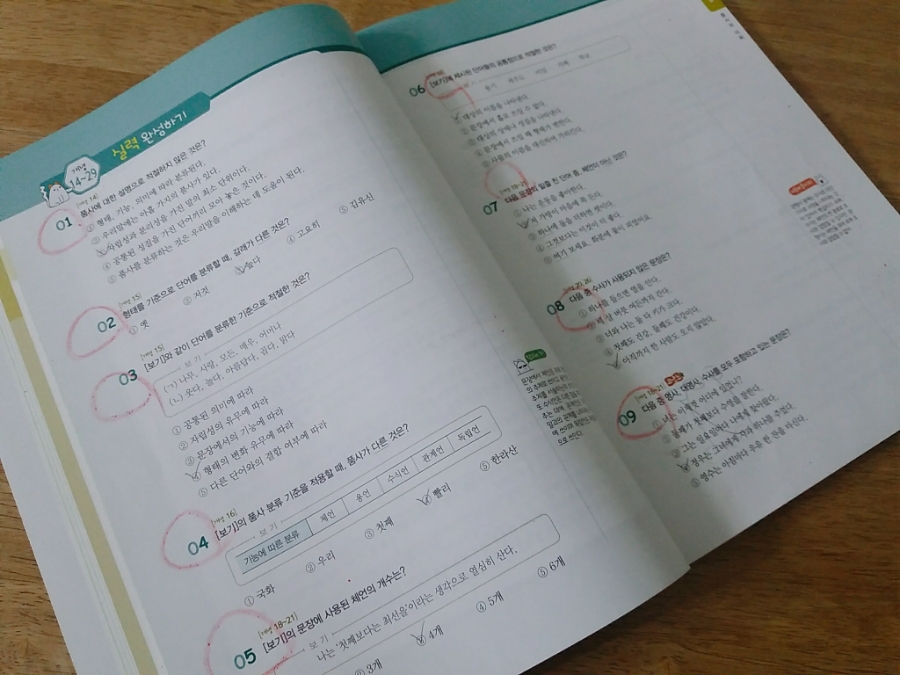 개념
14~29
실력 완성하기
[개념 14]
01 품사에 대한 설명으로 적절하지 않은 것은?
① 형태, 기능, 의미에 따라 분류된다.
② 우리말에는 아홉 가지의 품사가 있다.
③ 자립성과 분리성을 가진 말의 최소 단위이다.
④ 공통된 성질을 가진 단어끼리 모아 놓은 것이다.
⑤ 품사를 분류하는 것은 우리말을 이해하는 데 도움이 된다.
[개념 15]
02 형태를 기준으로 단어를 분류할 때, 갈래가 다른 것은?
① 옛 ② 저것 ③ 늘다 ④ 고요히 ⑤ 김유신
[개념 15]
03 [보기]와 같이 단어를 분류한 기준으로 적절한 것은?
보기
(ㄱ) 나무, 사람, 모든, 매우, 어머나
(ㄴ) 웃다, 놀다, 아름답다, 곱다, 맑다
① 공통된 의미에 따라
② 자립성의 유무에 따라
③ 문장에서의 기능에 따라
④ 형태의 변화 유무에 따라
⑤ 다른 단어와의 결합 여부에 따라
[개념 16]
04 [보기]의 품사 분류 기준을 적용할 때, 품사가 다른 것은?
보기
기능에 따른 분류 체언 용언 수식언 관계언 독립언
① 국화 ② 우리 ③ 첫째 ④ 빨리 ⑤ 한라산
[개념 18~21]
05 [보기]의 문장에 사용된 체언의 개수는?
보기
나는 '첫째보다는 최선을'이라는 생각으로 열심히 산다.
② 3개 ③ 4개 ④ 5개 ⑤ 6개
06 [보기]에 제시된 단어들의 공통점으로 적절한 것은?
① 대상의 이름을 나타낸다.
② 문장에서 홀로 쓰일 수 없다.
③ 대상의 상태나 성질을 나타낸다.
④ 문장에서 쓰일 때 형태가 변한다.
07 다음 문장의 밑줄 친 단어 중, 체언이 아닌 것은?
① 나는 운동을 좋아한다.
② 저 가방이 마음에 꼭 든다.
④ 그것보다는 이것이 더 좋다.
⑤ 여기 보세요. 화분에 꽃이 피었어요.
08 다음 중 수사가 사용되지 않은 문장은?
① 하나를 들으면 열을 안다.
② 세 살 버릇 여든까지 간다.
③ 너와 나는 둘 다 키가 크다.
④ 첫째도 건강, 둘째도 건강이다.
⑤ 아직까지 한 사람도 오지 않았다.
09 다음 중 명사, 대명사, 수사를 모두 포함하고 있는 문장은?
① 너는 오늘도 어디에 있었니?
② 둘째가 첫째보다 수영을 잘한다.
③ 그는 일요일마다 나에게 찾아왔다.
④ 정운은 그녀에게 사과 하나를 주었다.
⑤ 영수는 아침마다 우유 한 잔을 마신다.